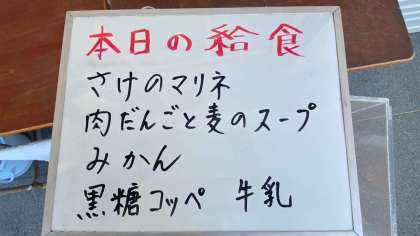 本日の給食
さけのマリネ
肉だんごと麦のスープ
みかん
黒糖コッペ 牛乳